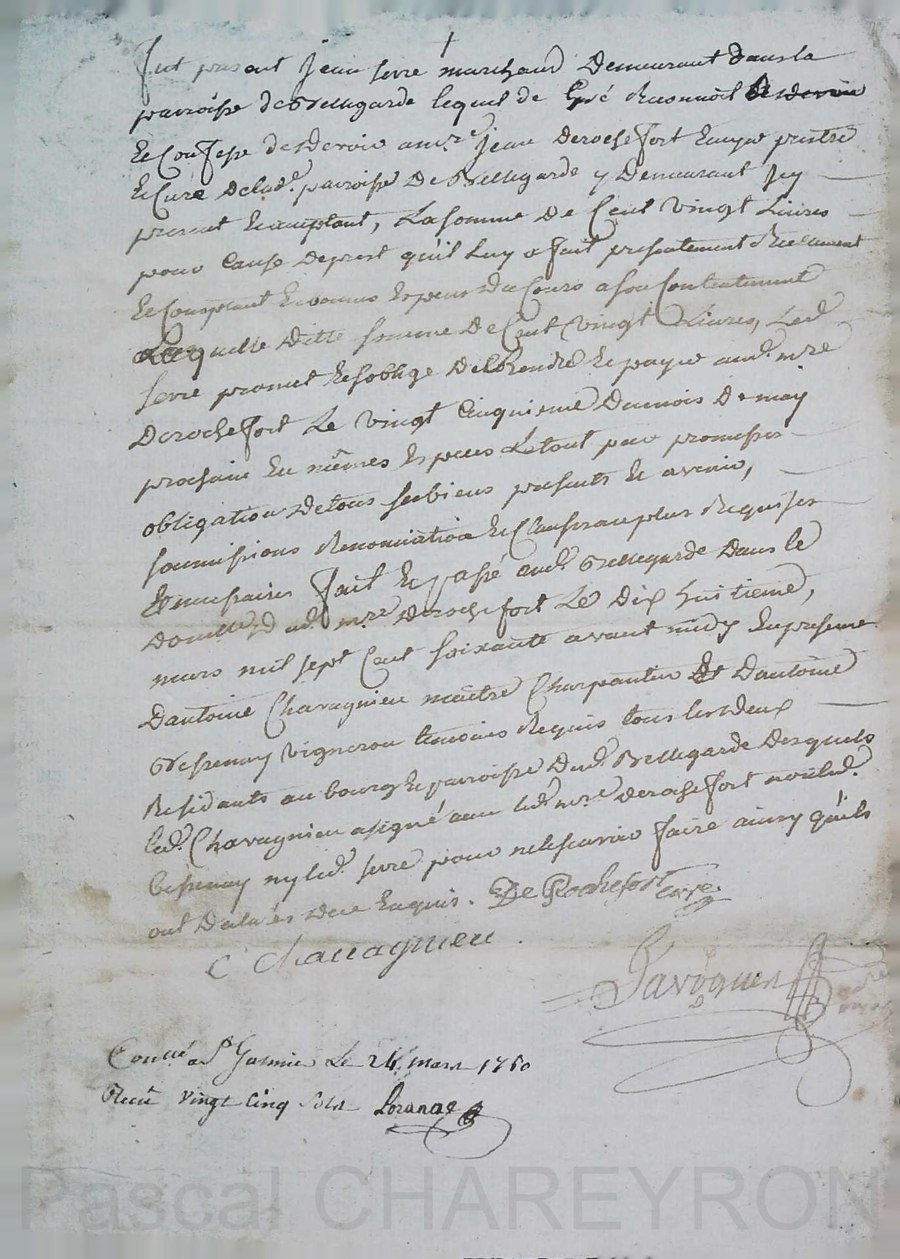 Fut present Jean Serre marchand Demeurant dans la
parroisse de Bellegarde lequel de Gré Reconnoit
Et Confesse Devoir a mre Jean Derochefort Ecuyer prestre
Et Curé de lad. parroisse De Bellegarde y Demeurant Icy
present Et acceptant, La somme De Cent vingt Livres
pour Cause de prest qu'il Luy a fait presentement Reellement
Et Comptant En bonnes Especes du Cours a son Contentement
Laquelle ditte somme De Cent vingt Livres, Led.
Serre promet Et soblige De Rendre Et payer aud. mre
Derochefort Le vingt Cinquieme Du mois De may
prochain En mêmes Especes Le tout par promesses
obligation De tous ses biens presents Et avenir,
soumissions Renonciation Et Clauses au plus Requises
Et necessaires fait Et passé aud. Bellegarde Dans le
Domicille dud. mre Derochefort Le Dix huitieme,
mars mil sept Cent soixante avant midy En presence
Dantoine Chavagnieu maitre Charpentier Et Dantoine
Bessenay vigneron temoins Requis tous les deux
Residants au bourg Et parroisse Dud. Bellegarde Desquels
led. Chavagnieu a signé avec led. mre Derochefort non led.
Bessenay ny led. Serre pour ne le scavoir faire ainsy qu'ils
ont Declaré De ce Enquis. De Rochefort Curé
C chavagnieu
Conllé a St Galmier Le 24 mars 1760
Recu vingt Cinq sols
Pascal CHAREYRON